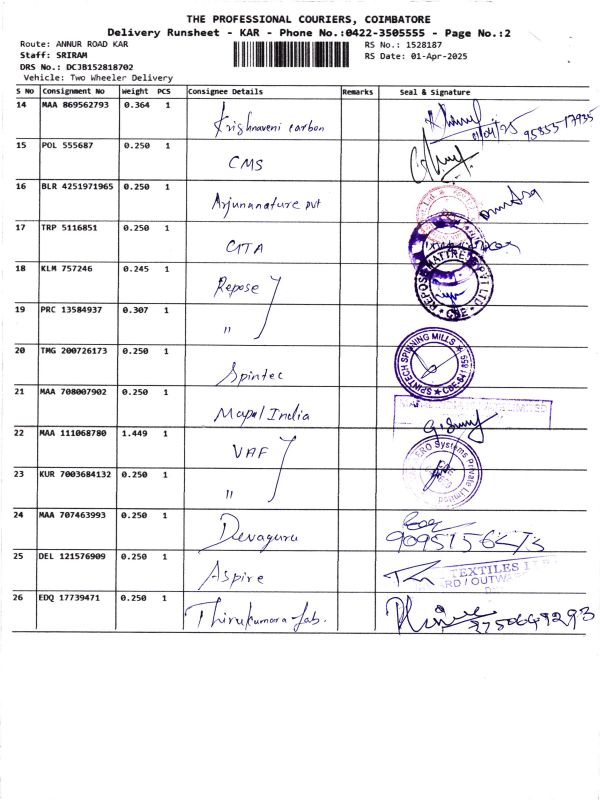 THE PROFESSIONAL COURIERS, COIMBATORE
Delivery Runsheet - KAR - Phone No.:0422-3505555 - Page No.:2
Route: ANNUR ROAD KAR
RS No.: 1528187
Staff: SRIRAM
RS Date: 01-Apr-2025
DRS No.: DCJB152818702
Vehicle: Two Wheeler Delivery
S No Consignment No Weight PCS Consignee Details Remarks Seal & Signature
14 MAA 869562793 0.364 1 Krishnaveni carbon 01/04/25 95855 17935
15 POL 555687 0.250 1 CMS
16 BLR 4251971965 0.250 1 Arjunanature pvt
17 TRP 5116851 0.250 1 CITA
18 KLM 757246 0.245 1 Repose REPOSE MATTRESS PVT LTD CBE
19 PRC 13584937 0.307 1 "
20 TMG 200726173 0.250 1 Spintec SPINTECH SPINNING MILLS
21 MAA 708007902 0.250 1 Mapal India LIMITED
22 MAA 111068780 1.449 1 VAF Systems Private Limited
23 KUR 7003684132 0.250 1 "
24 MAA 707463993 0.250 1 Devaguru
25 DEL 121576909 0.250 1 Aspire TEXTILES
26 EDQ 17739471 0.250 1 Thirukumara fab.